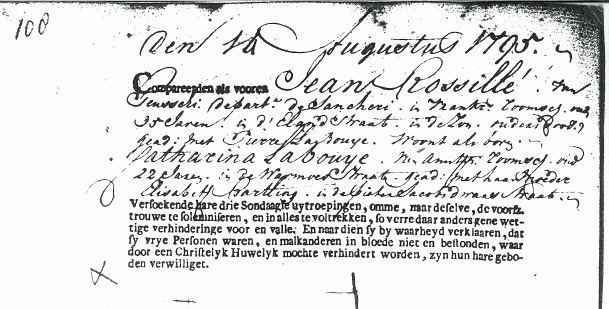 108
den 14 Augustus 1795.
Compareerden als vooren Jean Rossillé. Van
Departt. de Sancheri. in Frankr. Roomsch, oud
35 Jaren. in d' Eland Straat. in de Zon. ouders dood.
geads: met Pierre La Bouye. Woont als boven.
Catharina Labouye. Van Amstm. Roomsch. oud
22 Jaren. in de Warmoes Straat. geads: met haar Moeder
Elisabeth Hartting. in de Pieter Jacobs dwars Straat.
Versoekende hare drie Sondaagse uytroepingen, omme, naar deselve, de voorsz.
trouwe te solemniseren, en in alles te voltrekken, so verre daar anders gene wet-
tige verhinderinge voor en valle. En naar dien sy by waarheyd verklaaren, dat
sy vrye Personen waren, en malkanderen in bloede niet en bestonden, waar
door een Christelyk Huwelyk mochte verhindert worden, zyn hun hare gebo-
den verwilliget.